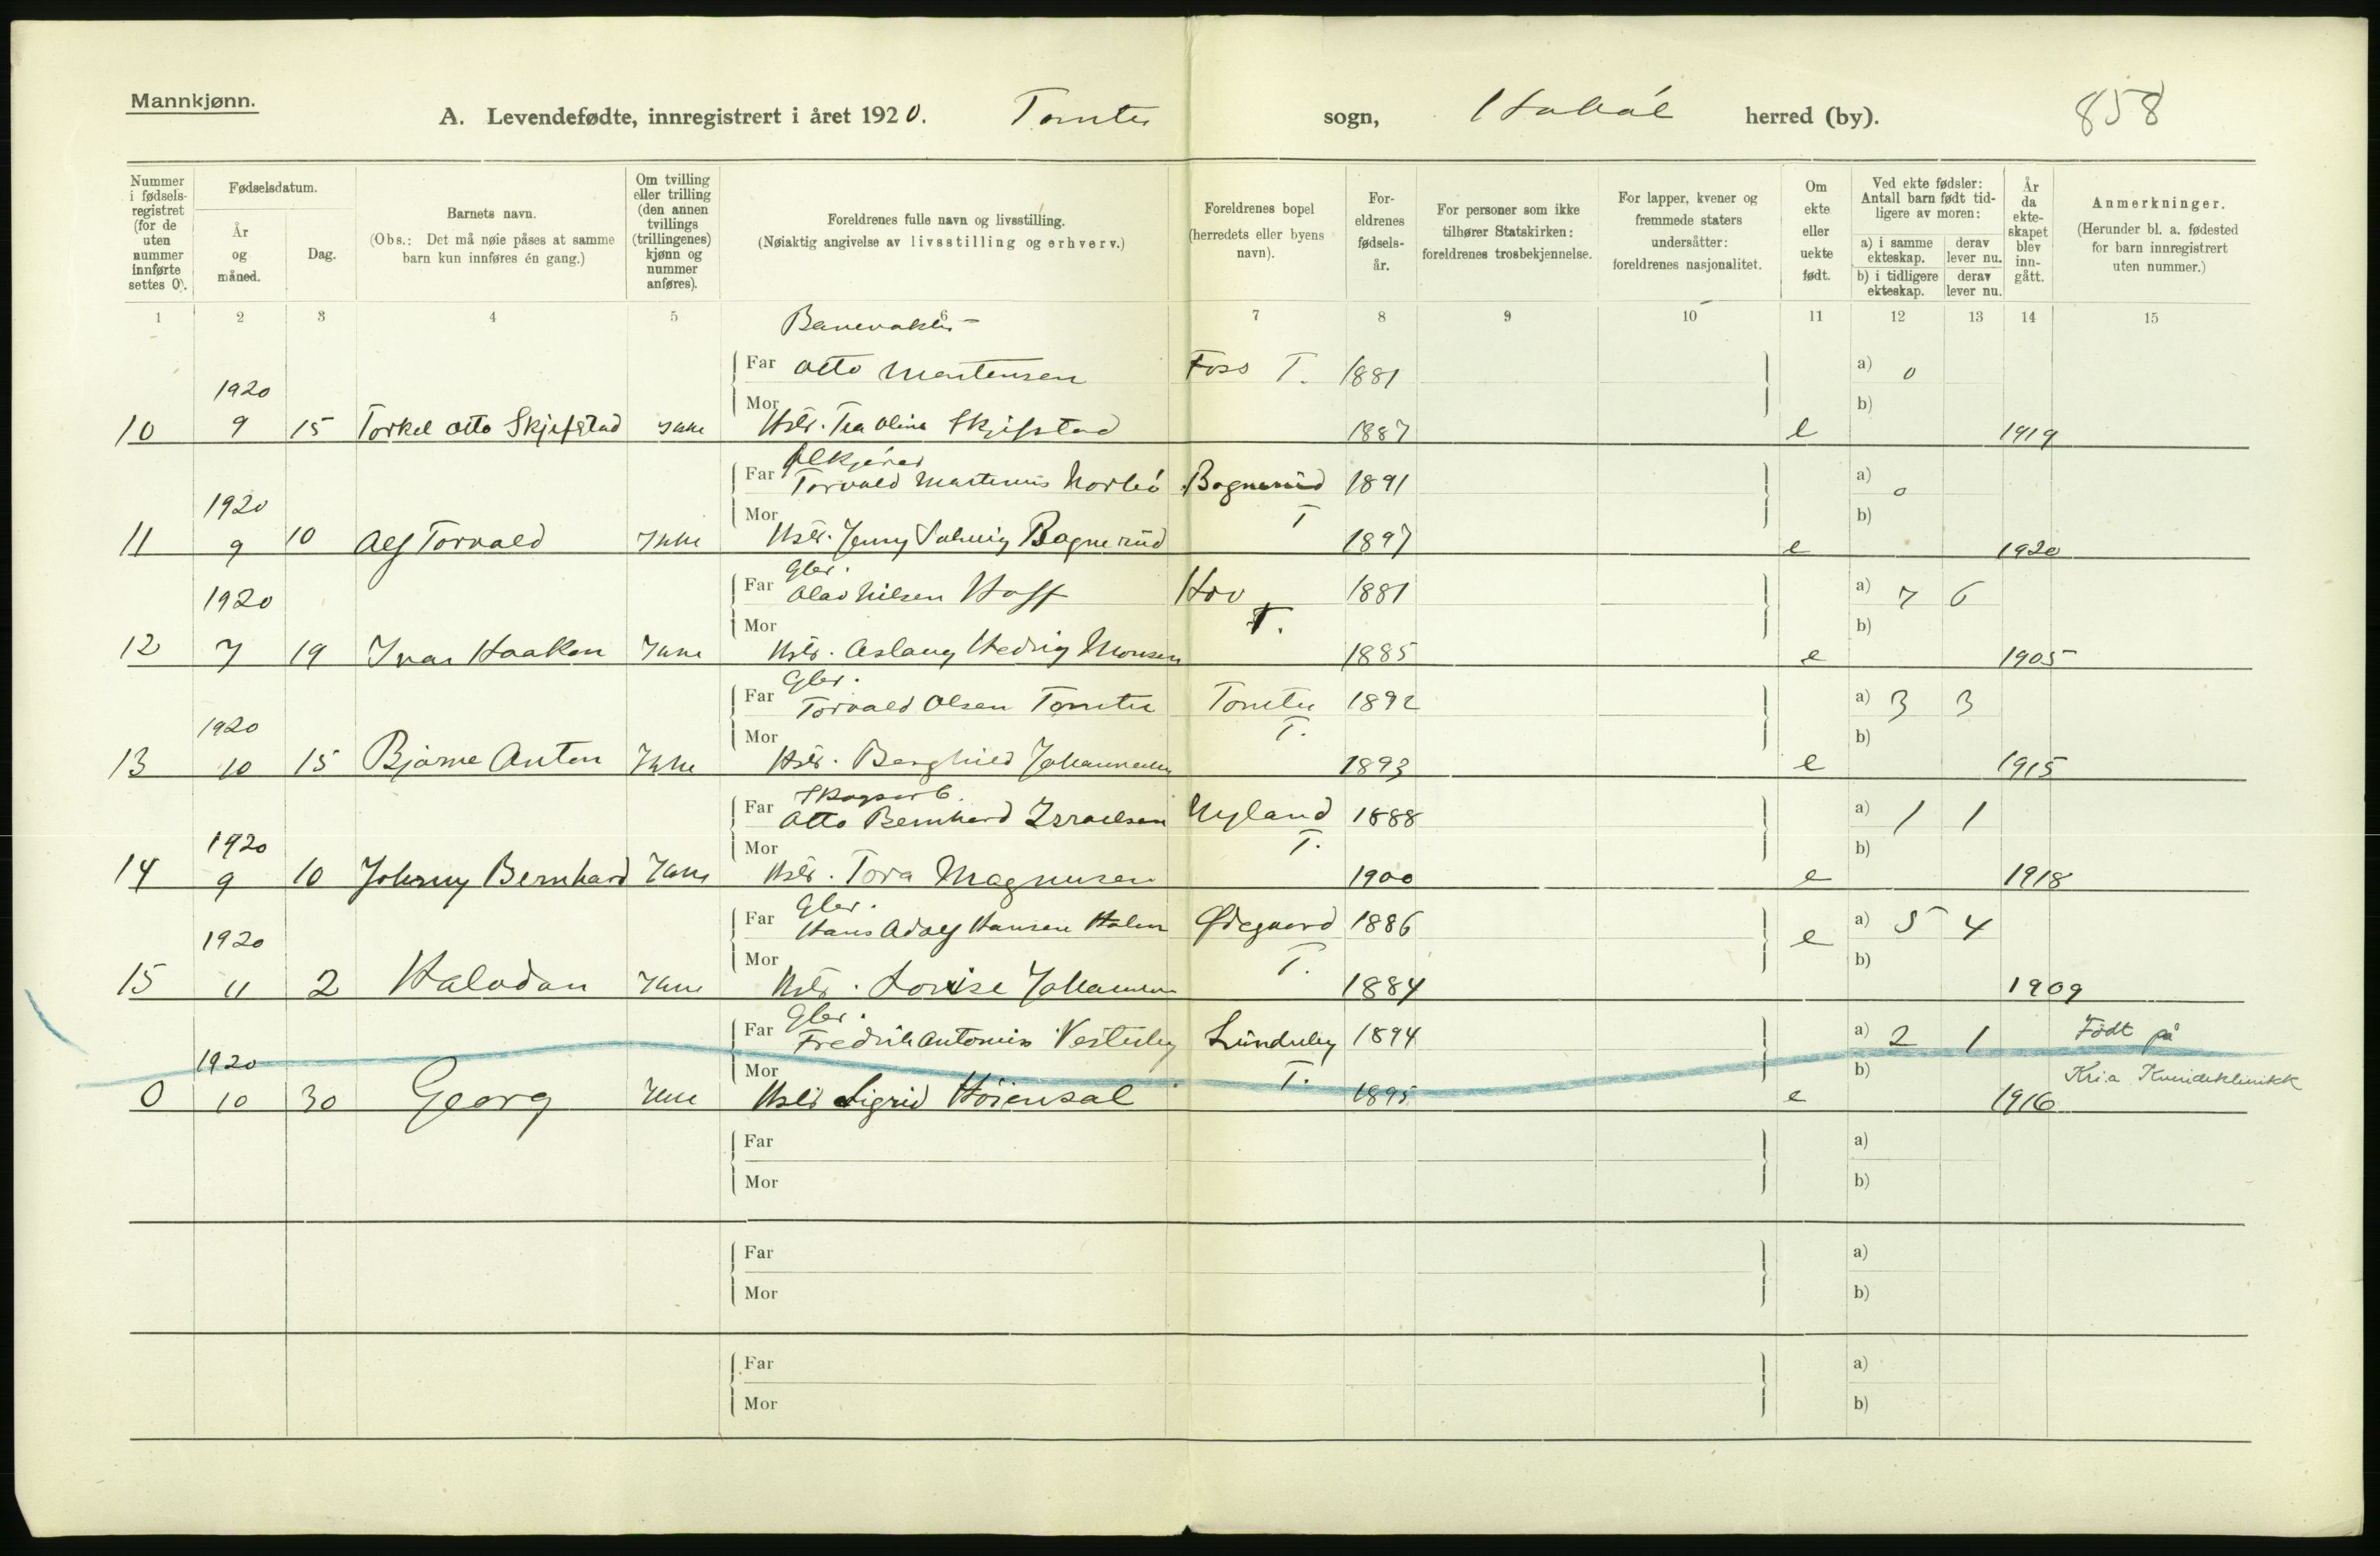 Mannkjønn.
A. Levendefødte, innregistrert i året 1920. Tomter sogn, Hobøl herred (by). 858
Nummer i fødsels-registret (for de uten nummer innførte settes 0).
Fødselsdatum.
År og måned.
Dag.
Barnets navn.
(Obs.: Det må nøie påses at samme barn kun innføres én gang.)
Om tvilling eller trilling (den annen tvillings (trillingenes) kjønn og nummer anføres).
Foreldrenes fulle navn og livsstilling.
(Nøiaktig angivelse av livsstilling og erhverv.)
Foreldrenes bopel (herredets eller byens navn).
For-eldrenes fødsels-år.
For personer som ikke tilhører Statskirken: foreldrenes trosbekjennelse.
For lapper, kvener og fremmede staters undersåtter: foreldrenes nasjonalitet.
Om ekte eller uekte født.
Ved ekte fødsler: Antall barn født tid-ligere av moren:
a) i samme ekteskap. derav lever nu.
b) i tidligere ekteskap. derav lever nu.
År da ekte-skapet blev inn-gått.
Anmerkninger.
(Herunder bl. a. fødested for barn innregistrert uten nummer.)
1 2 3 4 5 6 7 8 9 10 11 12 13 14 15
Banevokter
Far Otto Mortensen Foss T. 1881 a) 0
1920
Mor b)
10 9 15 Torkel Otto Skjefstad Ikke Hstr. Tea Oline Skjefstad 1887 e 1919
Far Torvald Martinius Norbø Bognerud 1891 a) 0
1920
Mor T b)
11 9 10 Alf Torvald Ikke Hstr. Jenny Solveig Bognerud 1897 e 1920
Gbr.
Far Olav Nilsen Hoff Hov 1881 a) 7 6
1920
Mor T. b)
12 7 19 Ivar Haakon Ikke Hstr. Aslaug Hedvig Monsen 1885 e 1905
Gbr.
Far Torvald Olsen Tomter Tomter 1892 a) 3 3
1920
Mor T. b)
13 10 15 Bjarne Anton Ikke Hstr. Borghild Johannesen 1893 e 1915
Skogsarb.
Far Otto Bernhard Israelsen Nyland 1888 a) 1 1
1920
Mor T. b)
14 9 10 Johnny Bernhard Ikke Hstr. Tora Magnusen 1900 e 1918
Gbr.
Far Hans Adolf Hansen Holm Ødegaard 1886 a) 5 4
1920 e
Mor T. b)
15 11 2 Halvdan Ikke Hstr. Lovise Johansen 1884 1909
Gbr.
Far Fredrik Antonius Vesteby Lunduby 1894 a) 2 1 Født på
1920
Mor T. b) Kri.a Kvindeklinikk
0 10 30 Georg Ikke Hstr Sigrid Høiensal 1895 e 1916
Far a)
Mor b)
Far a)
Mor b)
Far a)
Mor b)